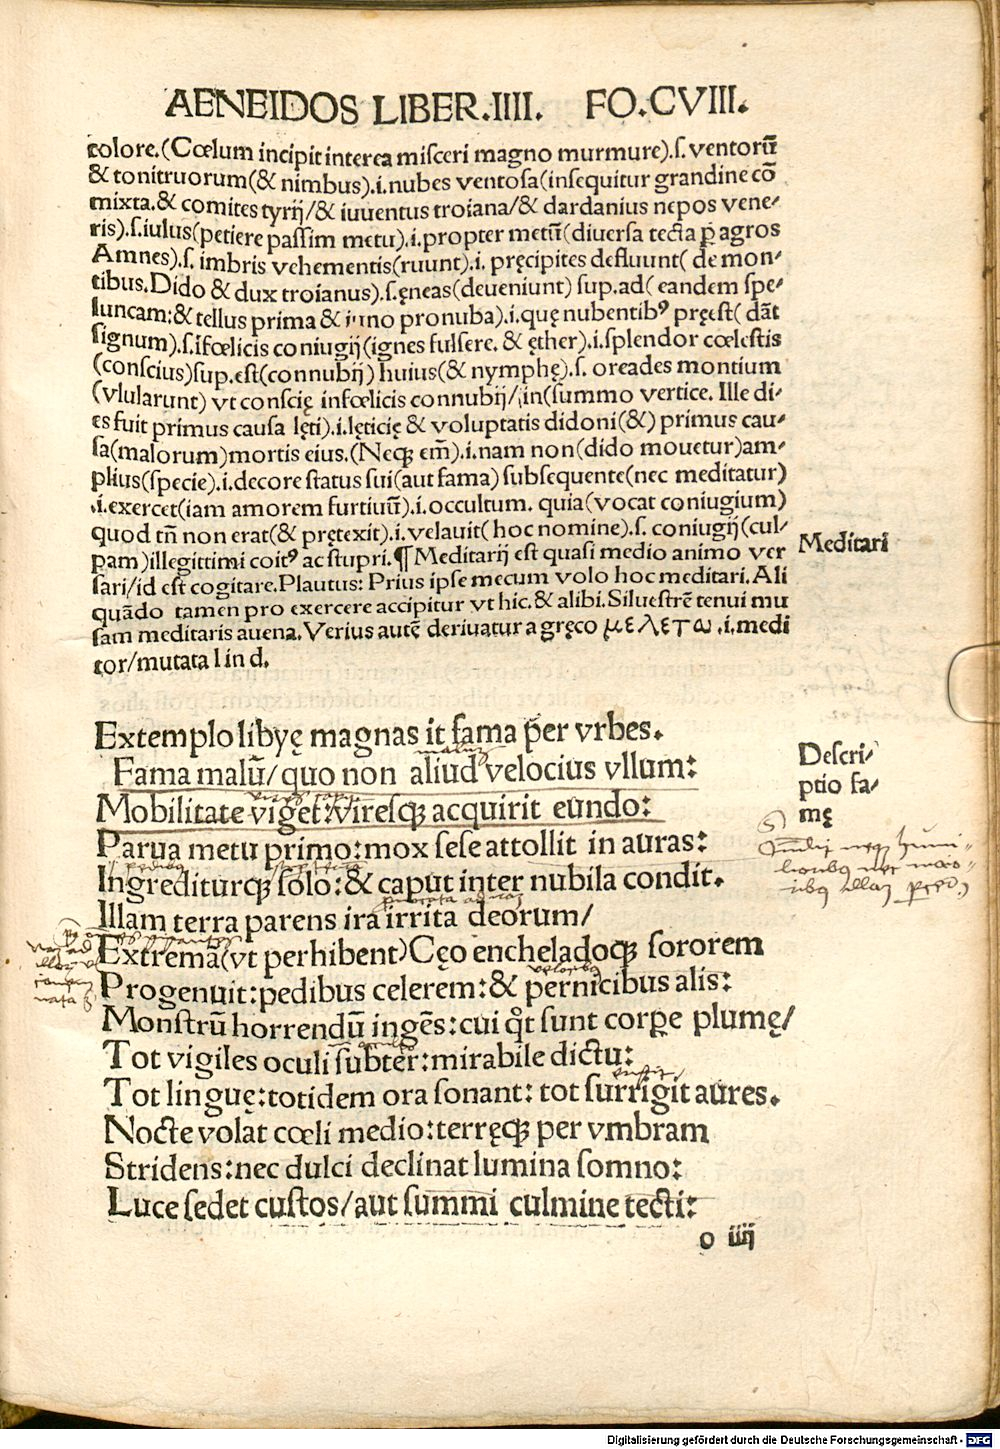 AENEIDOS LIBER.IIII. FO.CVIII.
colore.(Cœlum incipit interea misceri magno murmure).ſ. ventorũ
& tonitruorum(& nimbus).i.nubes ventoſa(inſequitur grandine cõ
mixta.& comites tyrij/& iuuentus troiana/& dardanius nepos vene⸗
ris).ſ.iulus(petiere paſſim metu).i.propter metũ(diuerſa tecta ꝑ agros
Amnes).ſ. imbris vehementis(ruunt).i. pręcipites defluunt( de mon⸗
tibus.Dido & dux troianus).ſ.ęneas(deueniunt) ſup.ad( eandem ſpe⸗
luncam:& tellus prima & iuno pronuba).i.quę nubentibꝰ pręeſt( dãt
ſignum).ſ.ifœlicis coniugij(ignes fulſere. & ęther).i.ſplendor cœleſtis
(conſcius)ſup.eſt(connubij) huius(& nymphę).ſ. oreades montium
(vlularunt) vt conſcię infœlicis connubij/in(ſummo vertice. Ille di⸗
es fuit primus cauſa lęti).i.lęticię & voluptatis didoni(&) primus cau⸗
ſa(malorum)mortis eius.(Neqꝫ em̃).i.nam non(dido mouetur)am⸗
plius(ſpecie).i.decore ſtatus ſui(aut fama) ſubſequente(nec meditatur)
.i.exercet(iam amorem furtiuũ).i.occultum. quia(vocat coniugium)
quod tñ non erat(& prętexit).i.velauit( hoc nomine).ſ. coniugij(cul⸗
pam)illegittimi coitꝰ ac ſtupri.¶ Meditarij eſt quaſi medio animo ver
Meditari
ſari/id eſt cogitare.Plautus: Prius ipſe mecum volo hoc meditari.Ali
quãdo tamen pro exercere accipitur vt hic.& alibi.Silueſtrẽ tenui mu
ſam meditaris auena.Verius autẽ deriuatur a gręco μελετω.i.medi
tor/mutata l in d.
Extemplo libyę magnas it fama per vrbes.
Fama malũ/quo non aliud velocius vllum:
Deſcri⸗
ptio fa⸗
mę
Mobilitate viget:viresqꝫ acquirit eundo:
Parua metu primo:mox ſeſe attollit in auras:
Ingrediturqꝫ ſolo:& caput inter nubila condit.
Illam terra parens ira irrita deorum/
Extremã(vt perhibent)Cęo encheladoqꝫ ſororem
Progenuit:pedibus celerem:& pernicibus alis:
Monſtrũ horrendũ ingẽs:cui qͦt ſunt corpe plumę/
Tot vigiles oculi ſubter:mirabile dictu:
Tot linguę:totidem ora ſonant: tot ſurrigit aures.
Nocte volat cœli medio:terręqꝫ per vmbram
Stridens:nec dulci declinat lumina ſomno:
Luce ſedet cuſtos/aut ſummi culmine tecti:
o iiij
Digitalisierung gefördert durch die Deutsche Forschungsgemeinschaft - DFG